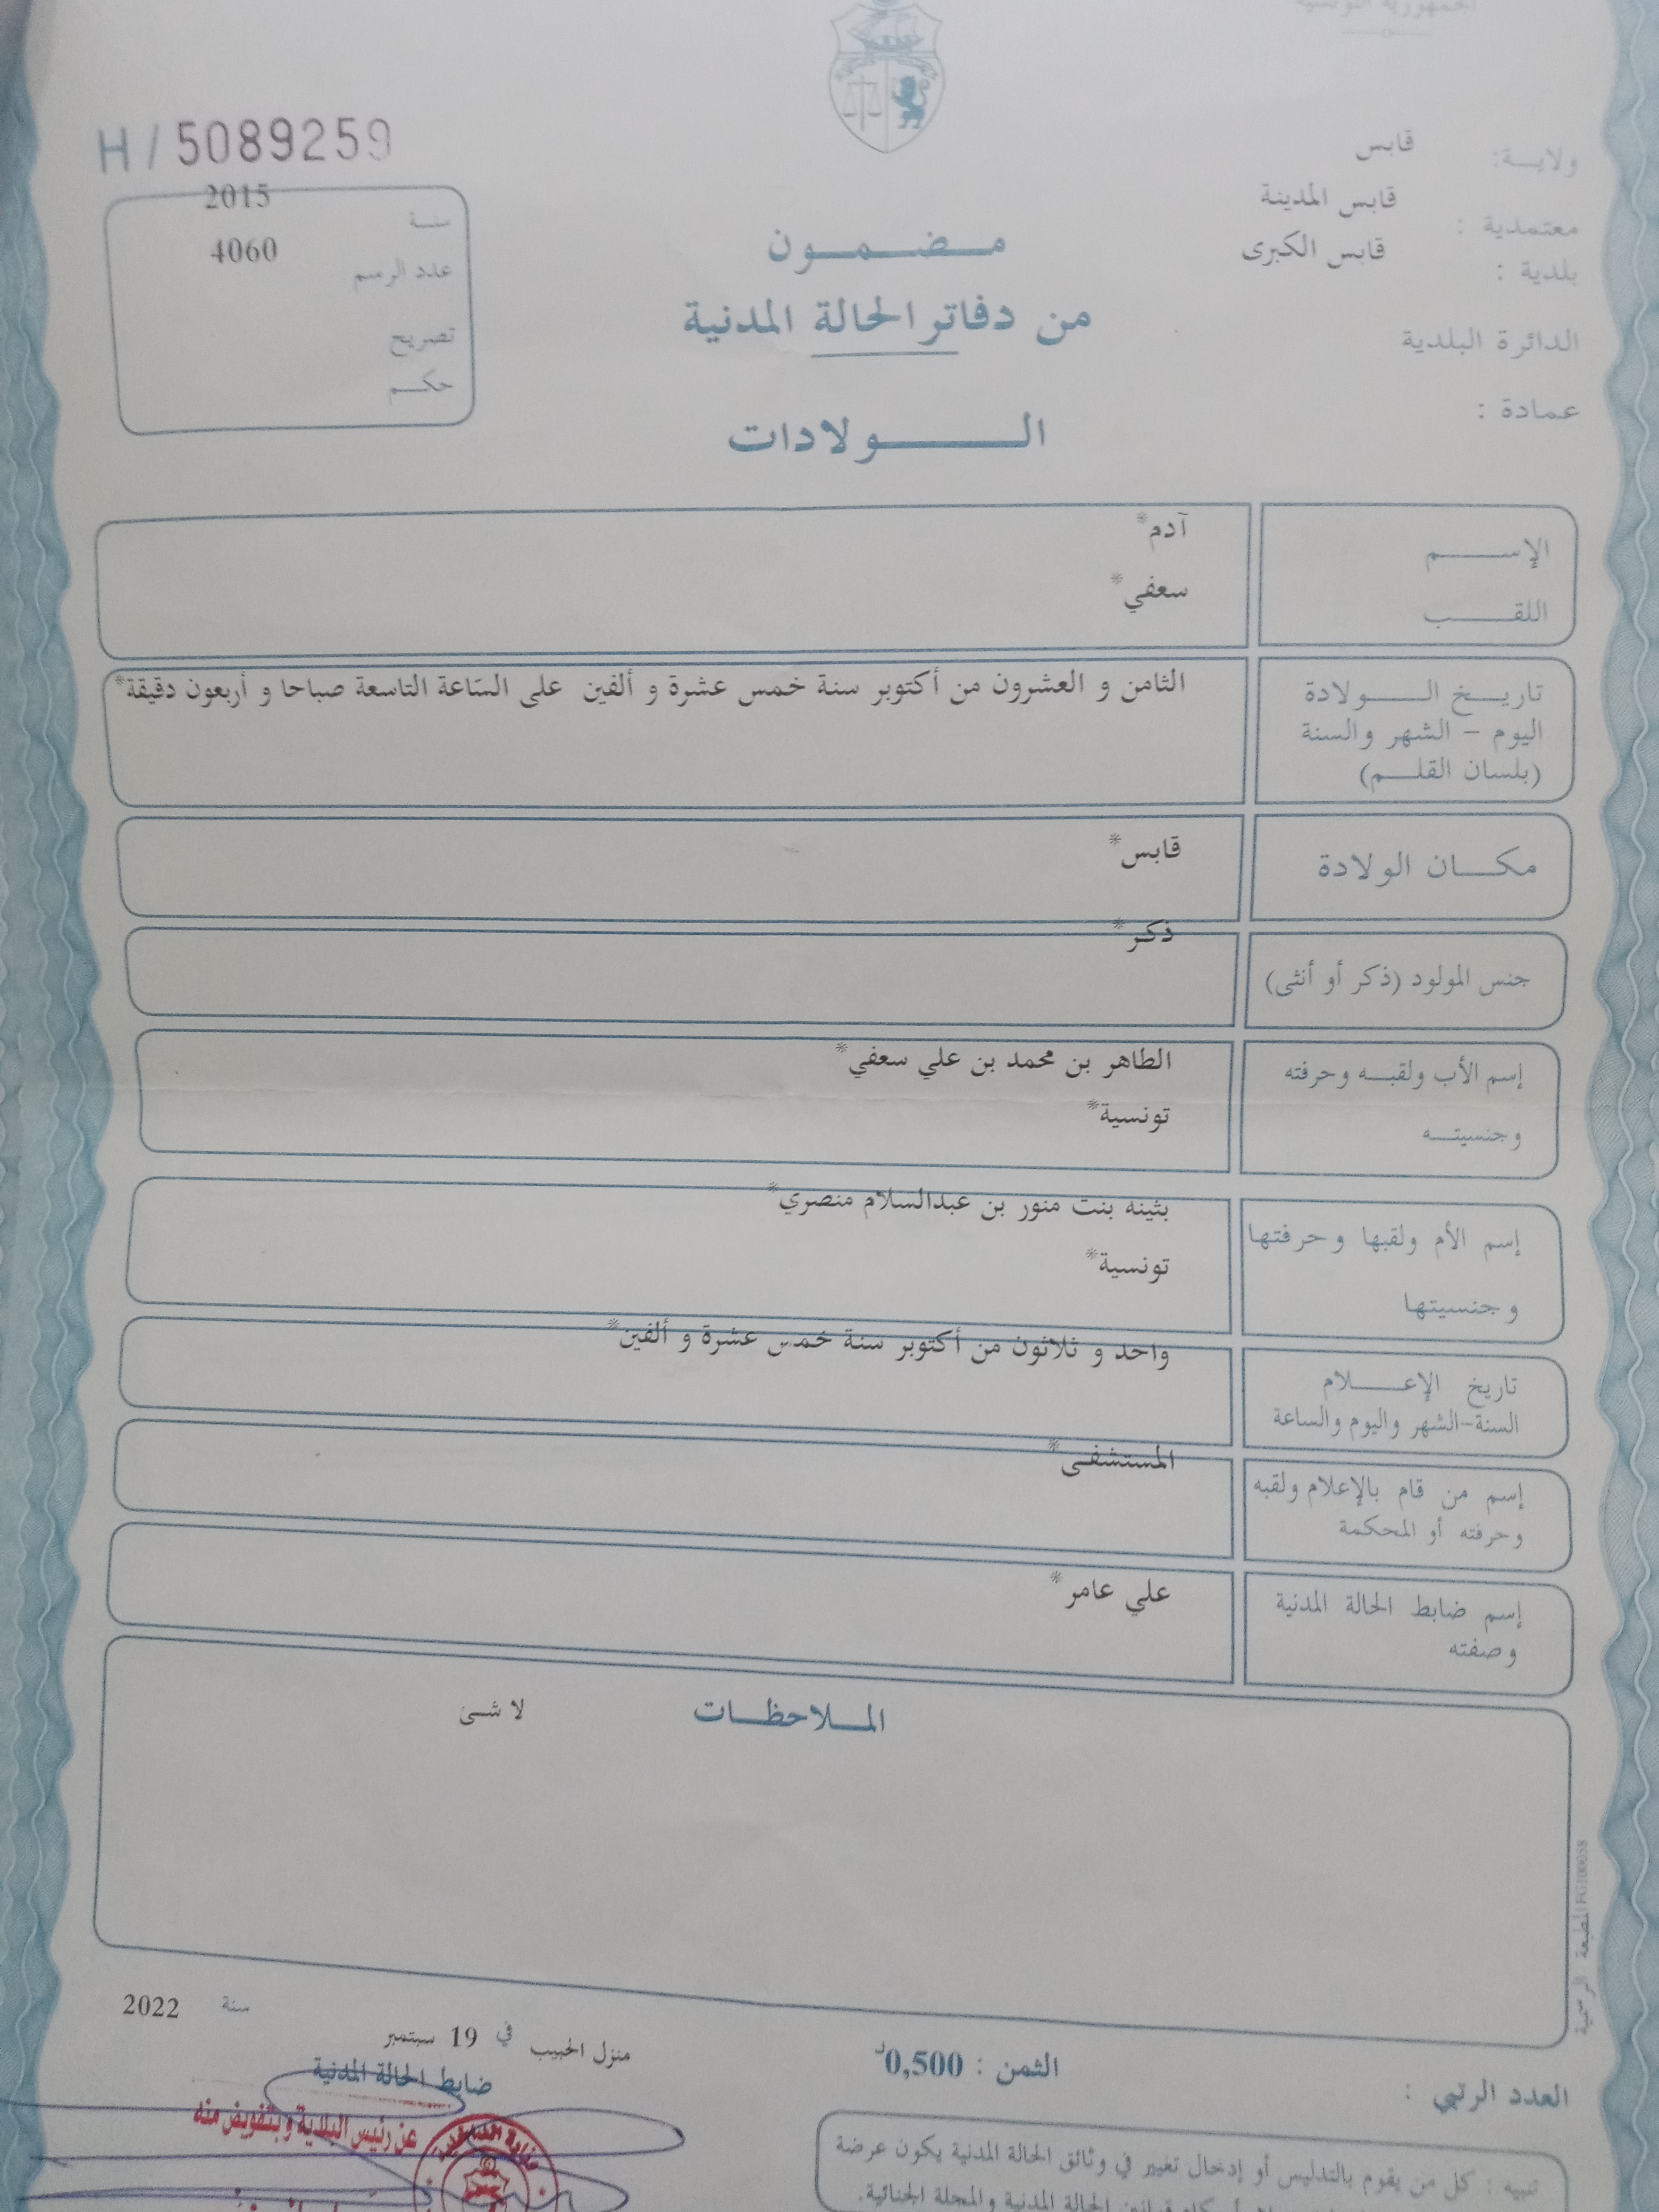 الجمهورية التونسية
H / 5089259
ولايـــة: قابس
معتمدية : قابس المدينة
بلدية : قابس الكبرى
الدائرة البلدية
عمادة :
سنة 2015
عدد الرسم 4060
تصريح
حكم
مضمون
من دفاتر الحالة المدنية
الولادات
الإسم آدم*
اللقب سعفي*
تاريخ الولادة
اليوم – الشهر والسنة
(بلسان القلم)
الثامن و العشرون من أكتوبر سنة خمس عشرة و ألفين على السّاعة التاسعة صباحا و أربعون دقيقة*
مكان الولادة قابس*
جنس المولود (ذكر أو أنثى) ذكر*
إسم الأب ولقبه وحرفته الطاهر بن محمد بن علي سعفي*
وجنسيته تونسية*
إسم الأم ولقبها وحرفتها بثينه بنت منور بن عبدالسلام منصري*
وجنسيتها تونسية*
تاريخ الإعلام واحد و ثلاثون من أكتوبر سنة خمس عشرة و ألفين*
السنة-الشهر واليوم والساعة
إسم من قام بالإعلام ولقبه المستشفى*
وحرفته أو المحكمة
إسم ضابط الحالة المدنية علي عامر*
وصفته
الملاحظات لا شئ
المطبعة الرسمية
منزل الحبيب في 19 سبتمبر سنة 2022
ضابط الحالة المدنية
عن رئيس البلدية وبتفويض منه
الثمن : 0,500د
العدد الرتبي :
تنبيه : كل من يقوم بالتدليس أو إدخال تغيير في وثائق الحالة المدنية يكون عرضة
قوانين الحالة المدنية والمجلة الجنائية.